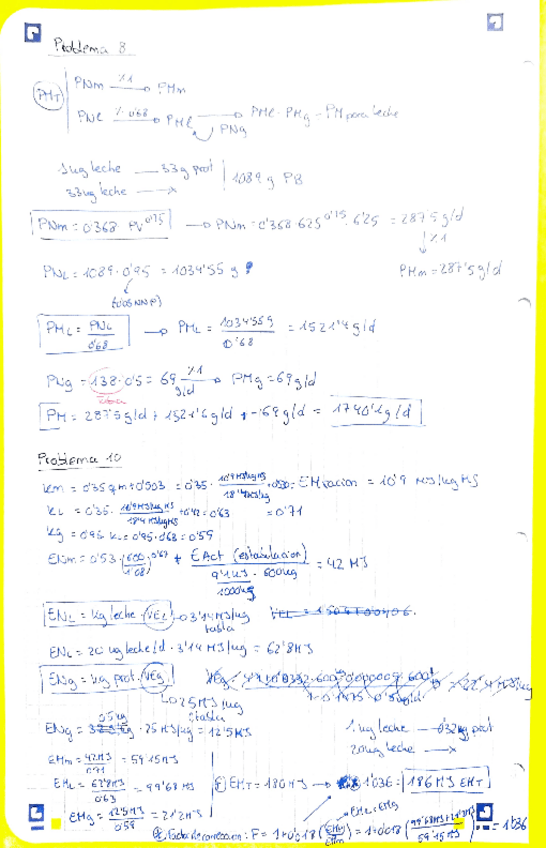 Problema 8
PMT
PNm ×1 → PMm
PNl ×0'68 → PMl → PMl - PMg = PM para leche
PNg
1 kg leche — 33 g prot
33 kg leche — x
1089 g PB
PNm = 0'368 PV^0'75 → PNm = 0'368·625^0'75·6'25 = 287'5 g/d
↓ ×1
PMm = 287'5 g/d
PNL = 1089·0'95 = 1034'55 g
PML = PNL/0'68 → PML = 1034'55 g/0'68 = 1521'4 g/d
PNg = 138·0'5 = 69 g/d ×1 → PMg = 69 g/d
PM = 287'5 g/d + 1521'6 g/d + -69 g/d = 1740'1 g/d
Problema 10
km = 0'35 qm + 0'503 = 0'35· 10'9 MJ/kg MS / 18'4 MJ/kg + 0'503 EM ración = 10'9 MJ/kg MS
kL = 0'35· 10'9 MJ/kg MS / 18'4 MJ/kg MS + 0'42 = 0'63
= 0'71
kg = 0'95·kL = 0'95·0'63 = 0'59
ENm = 0'53·(600/1'08)^0'67 + E Act (estabulación) = 42 MJ
9'1 kJ · 600 kg
1000 kg
ENL = kg leche · VEL → 3'14 MJ/kg
tabla
ENL = 20 kg leche/d · 3'14 MJ/kg = 62'8 MJ
ENg = kg prot. VEg
→ 25 MJ/kg
tabla
0'5 kg
ENg = · 25 MJ/kg = 12'5 MJ
1 kg leche — 0'32 kg prot
20 kg leche — x
EMm = 42 MJ/0'71 = 59'15 MJ
EML = 62'8 MJ/0'63 = 99'68 MJ
EMg = 12'5 MJ/0'59 = 21'2 MJ
F) EMT = 180 MJ → 1'036 = 186 MJ EMT
EML + EMg
Factor de corrección: F = 1 + 0'018 (EMp/EMm) = 1 + 0'018 (99'68 MJ + 21'2 MJ / 59'15 MJ) = 1'036